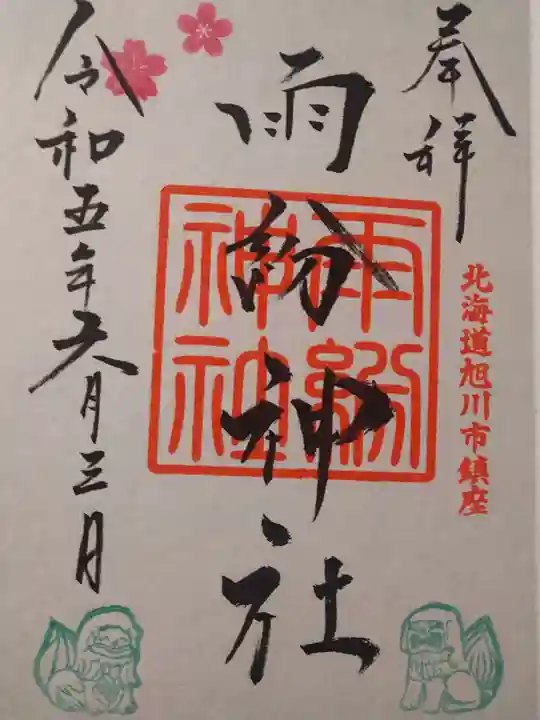 奉拝
北海道旭川市鎮座
雨紛神社
雨紛神社
令和五年六月三日